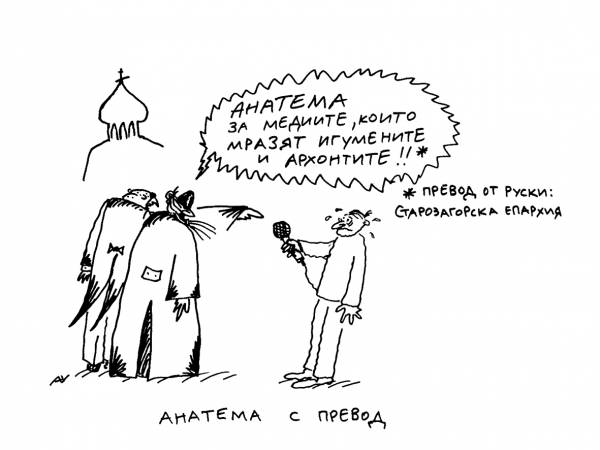 АНАТЕМА
ЗА МЕДИИТЕ, КОИТО
МРАЗЯТ ИГУМЕНИТЕ
И АРХОНТИТЕ!!*
* ПРЕВОД ОТ РУСКИ:
СТАРОЗАГОРСКА ЕПАРХИЯ
АНАТЕМА С ПРЕВОД